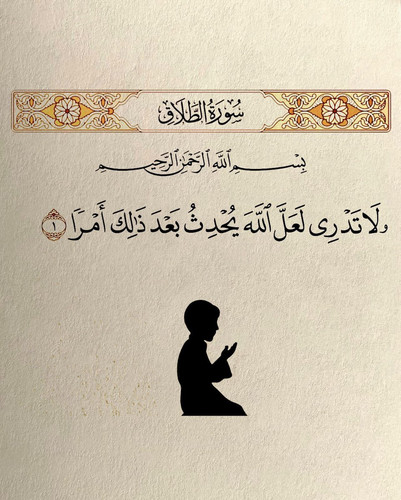 سُورَةُ الطَّلَاقِ
بِسْمِ ٱللَّهِ ٱلرَّحْمَٰنِ ٱلرَّحِيمِ
ولَا تَدْرِى لَعَلَّ ٱللَّهَ يُحْدِثُ بَعْدَ ذَٰلِكَ أَمْرًا ١